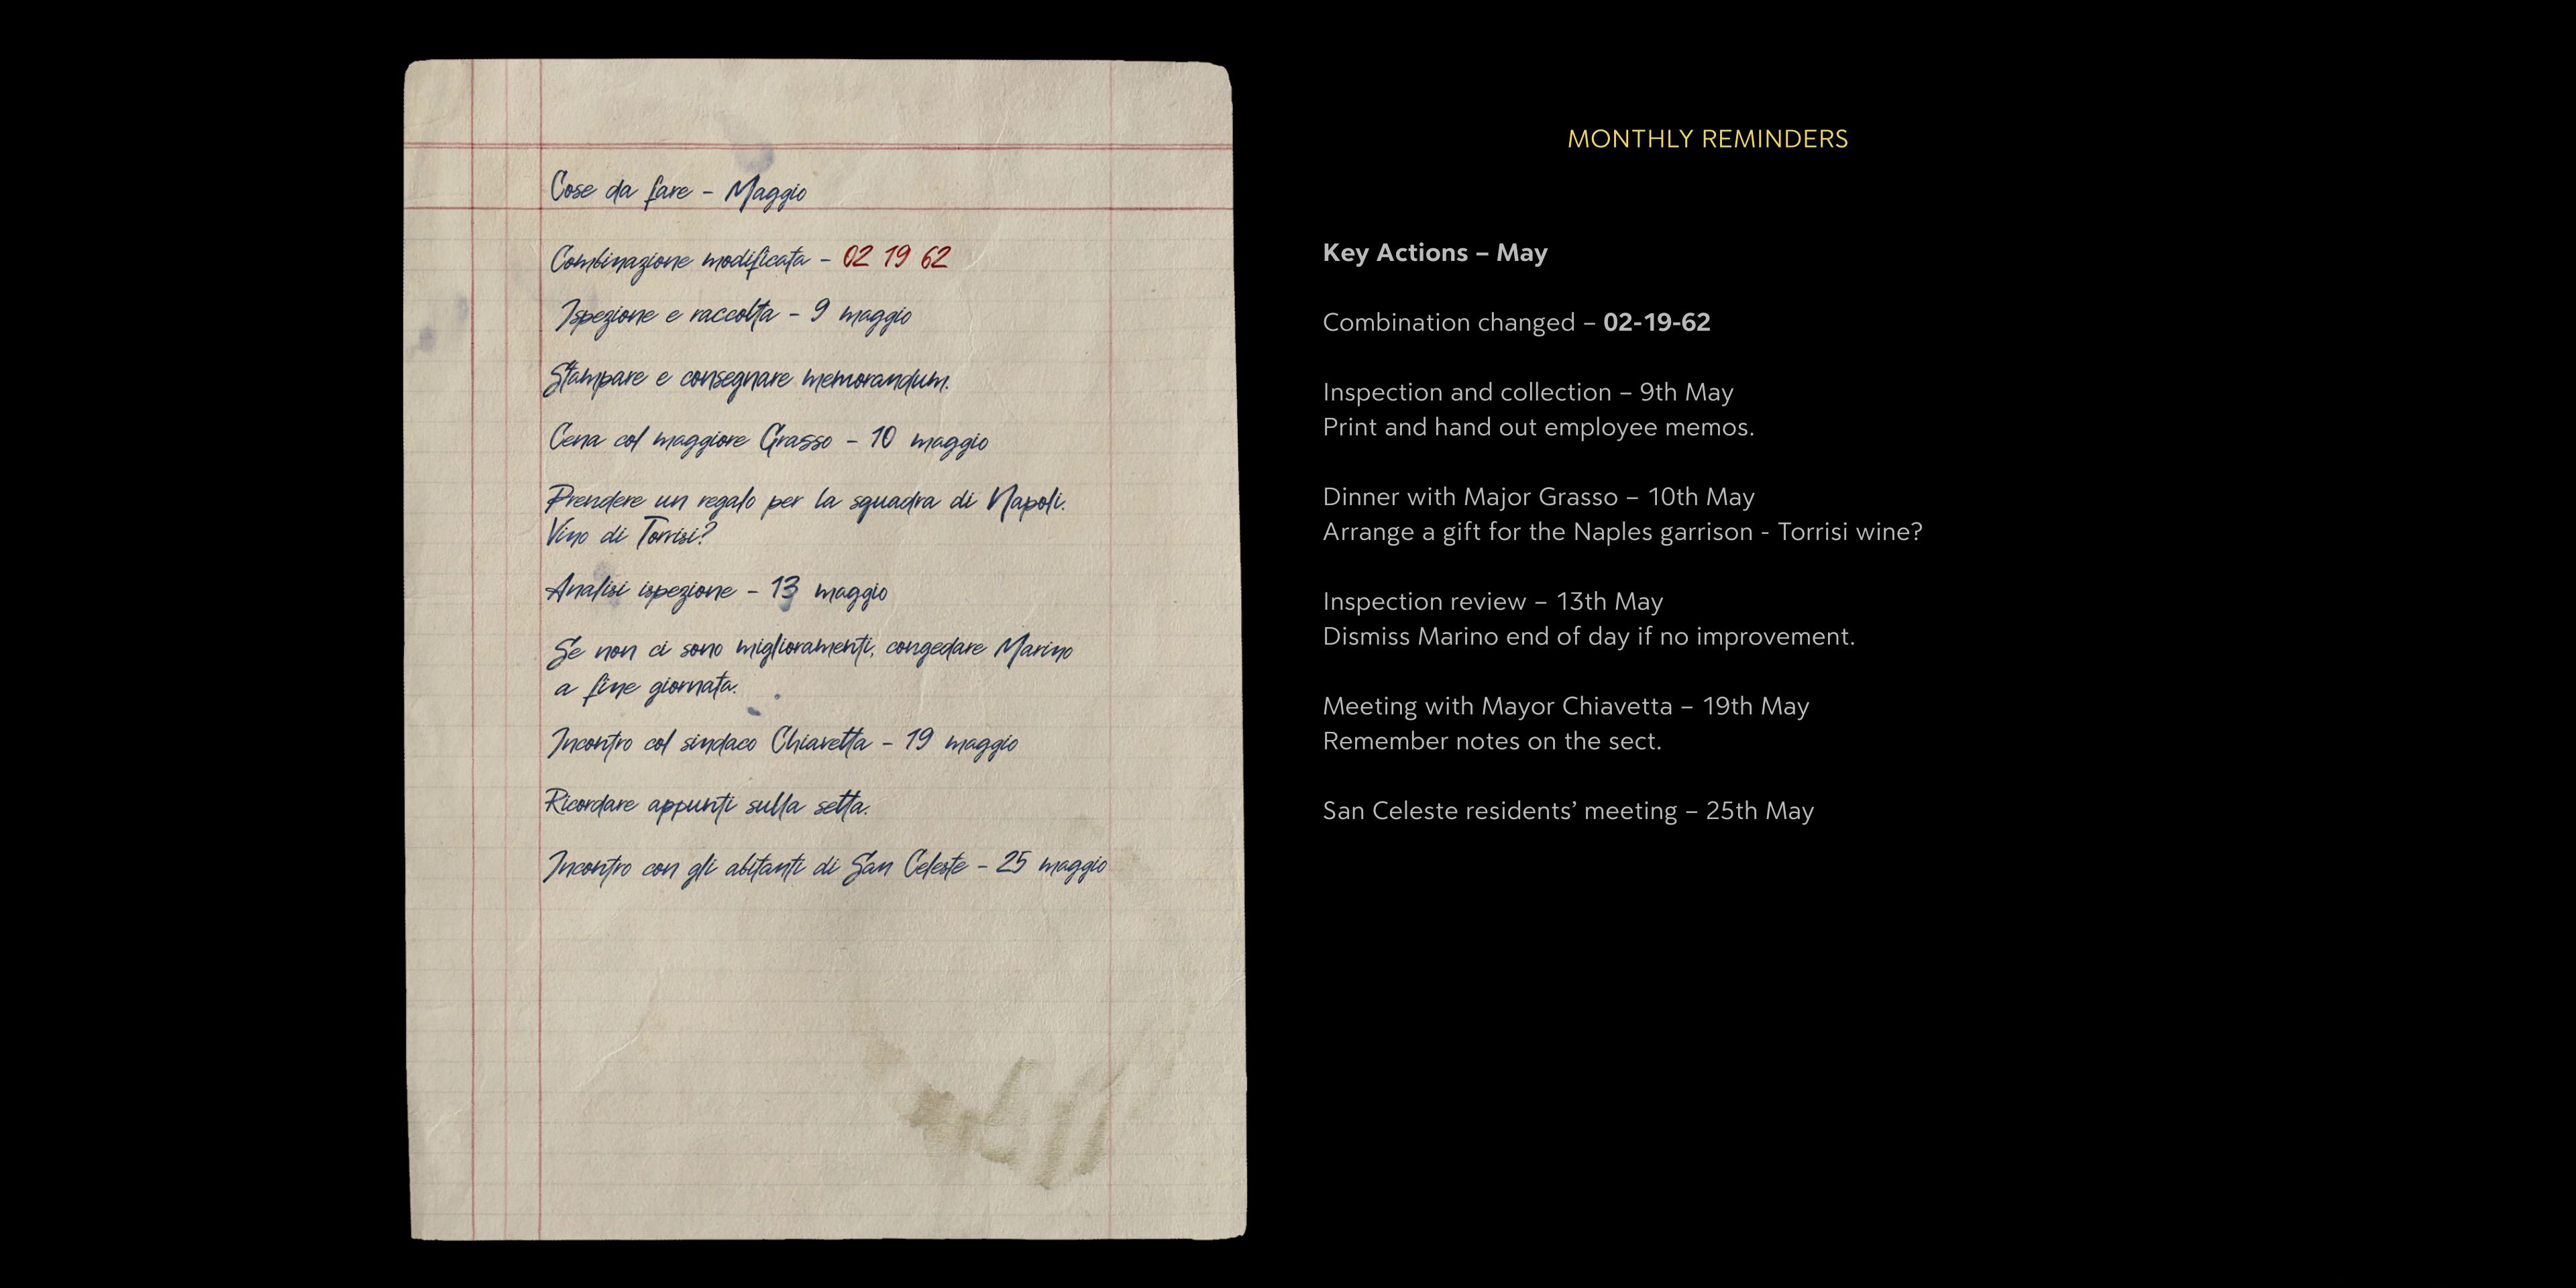 Cose da fare - Maggio
Combinazione modificata - 02 19 62
Ispezione e raccolta - 9 maggio
Stampare e consegnare memorandum.
Cena col maggiore Grasso - 10 maggio
Prendere un regalo per la squadra di Napoli.
Vino di Torrisi?
Analisi ispezione - 13 maggio
Se non ci sono miglioramenti, congedare Marino
a fine giornata.
Incontro col sindaco Chiavetta - 19 maggio
Ricordare appunti sulla setta.
Incontro con gli abitanti di San Celeste - 25 maggio
MONTHLY REMINDERS
Key Actions – May
Combination changed – 02-19-62
Inspection and collection – 9th May
Print and hand out employee memos.
Dinner with Major Grasso – 10th May
Arrange a gift for the Naples garrison - Torrisi wine?
Inspection review – 13th May
Dismiss Marino end of day if no improvement.
Meeting with Mayor Chiavetta – 19th May
Remember notes on the sect.
San Celeste residents’ meeting – 25th May